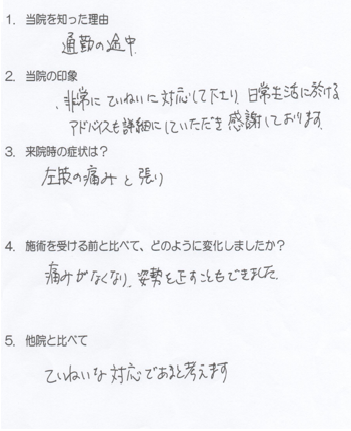 1. 当院を知った理由
通勤の途中
2. 当院の印象
非常にていねいに対応して下さり、日常生活に於ける
アドバイスも詳細にしていただき感謝しております。
3. 来院時の症状は?
左肢の痛みと張り
4. 施術を受ける前と比べて、どのように変化しましたか?
痛みがなくなり、姿勢を正すこともできました。
5. 他院と比べて
ていねいな対応であると考えます